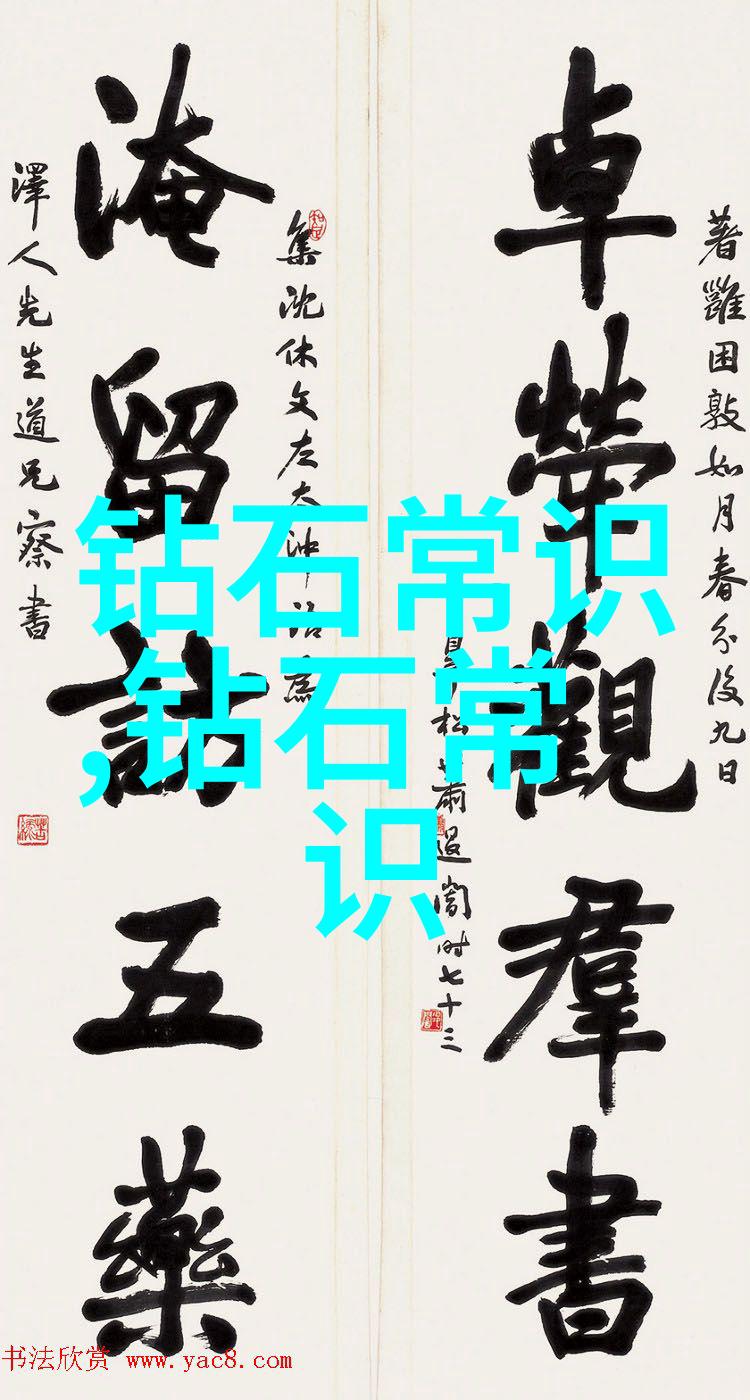 著雝困敦如月春分後九日
卓犖觀群書
松蕭退闇时七十三
集沈休文左太沖
淹留訪五藥
澤人先生道兄察書
钻石常识
,钻石常
识
书法欣赏 www.yac8.com